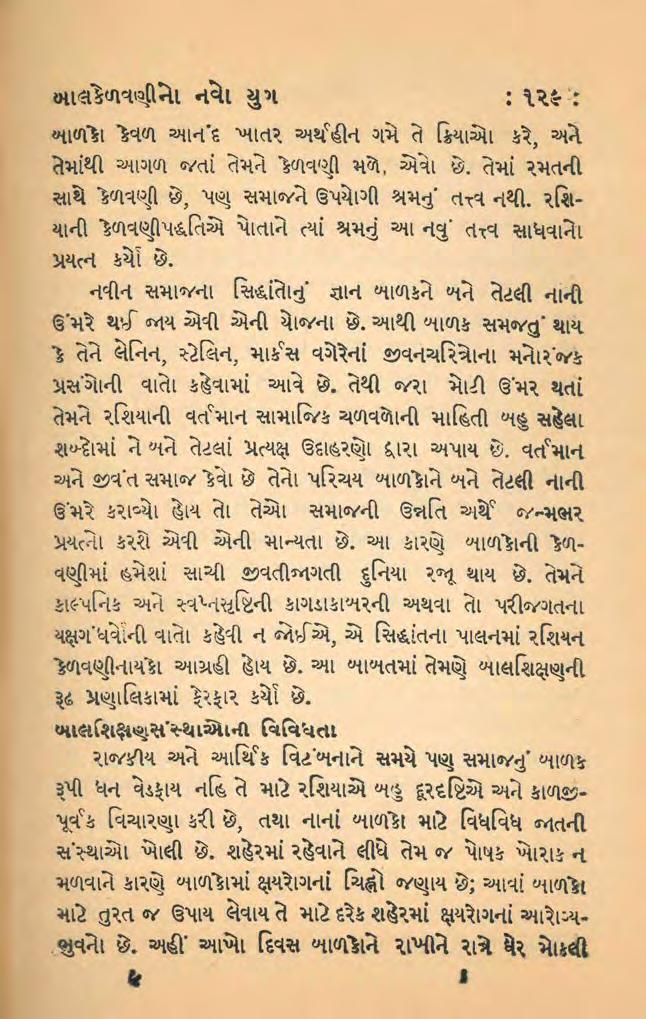 બાલકેળવણીનો નવો યુગ : ૧૨૯ :
બાળકો કેવળ આનંદ ખાતર અર્થહીન ગમે તે ક્રિયાઓ કરે, અને
તેમાંથી આગળ જતાં તેમને કેળવણી મળે, એવો છે. તેમાં રમતની
સાથે કેળવણી છે, પણ સમાજને ઉપયોગી શ્રમનું તત્ત્વ નથી. રશિ-
યાની કેળવણીપદ્ધતિએ પોતાને ત્યાં શ્રમનું આ નવું તત્ત્વ સાધવાનો
પ્રયત્ન કર્યો છે.
નવીન સમાજના સિદ્ધાંતોનું જ્ઞાન બાળકને બને તેટલી નાની
ઉંમરે થઈ જાય એવી એની યોજના છે. આથી બાળક સમજતું થાય
કે તેને લેનિન, સ્ટેલિન, માર્કસ વગેરેનાં જીવનચરિત્રોના મનોરંજક
પ્રસંગોની વાતો કહેવામાં આવે છે. તેથી જરા મોટી ઉંમર થતાં
તેમને રશિયાની વર્તમાન સામાજિક ચળવળોની માહિતી બહુ સહેલા
શબ્દોમાં ને બને તેટલાં પ્રત્યક્ષ ઉદાહરણો દ્વારા અપાય છે. વર્તમાન
અને જીવંત સમાજ કેવો છે તેનો પરિચય બાળકોને બને તેટલી નાની
ઉંમરે કરાવ્યો હોય તો તેઓ સમાજની ઉન્નતિ અર્થે જન્મભર
પ્રયત્નો કરશે એવી એની માન્યતા છે. આ કારણે બાળકોની કેળ-
વણીમાં હમેશાં સાચી જીવતીજાગતી દુનિયા રજૂ થાય છે. તેમને
કાલ્પનિક અને સ્વપ્નસૃષ્ટિની કાગડાકાબરની અથવા તો પરીજગતના
યક્ષગંધર્વોની વાતો કહેવી ન જોઈએ, એ સિદ્ધાંતના પાલનમાં રશિયન
કેળવણીનાયકો આગ્રહી હોય છે. આ બાબતમાં તેમણે બાલશિક્ષણની
રૂઢ પ્રણાલિકામાં ફેરફાર કર્યો છે.
બાલશિક્ષણસંસ્થાઓની વિવિધતા
રાજકીય અને આર્થિક વિટંબનાને સમયે પણ સમાજનું બાળક
રૂપી ધન વેડફાય નહિ તે માટે રશિયાએ બહુ દૂરદષ્ટિએ અને કાળજી-
પૂર્વક વિચારણા કરી છે, તથા નાનાં બાળકો માટે વિધવિધ જાતની
સંસ્થાઓ ખોલી છે. શહેરમાં રહેવાને લીધે તેમ જ પોષક ખોરાક ન
મળવાને કારણે બાળકોમાં ક્ષયરોગનાં ચિહ્નો જણાય છે; આવાં બાળકો
માટે તુરત જ ઉપાય લેવાય તે માટે દરેક શહેરમાં ક્ષયરોગનાં આરોગ્ય-
ભુવનો છે. અહીં આખો દિવસ બાળકોને રાખીને રાત્રે ઘેર મોકલી